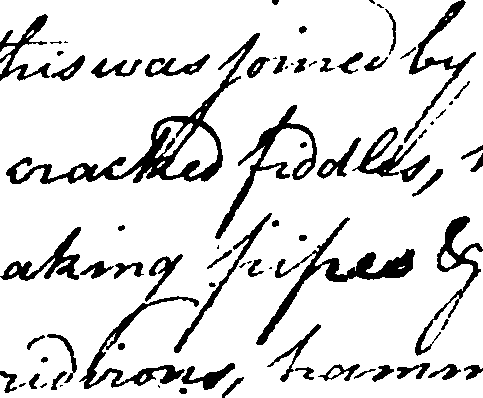 this was joined by
cracked fiddles,
aking pipes &
ridirons, hamm